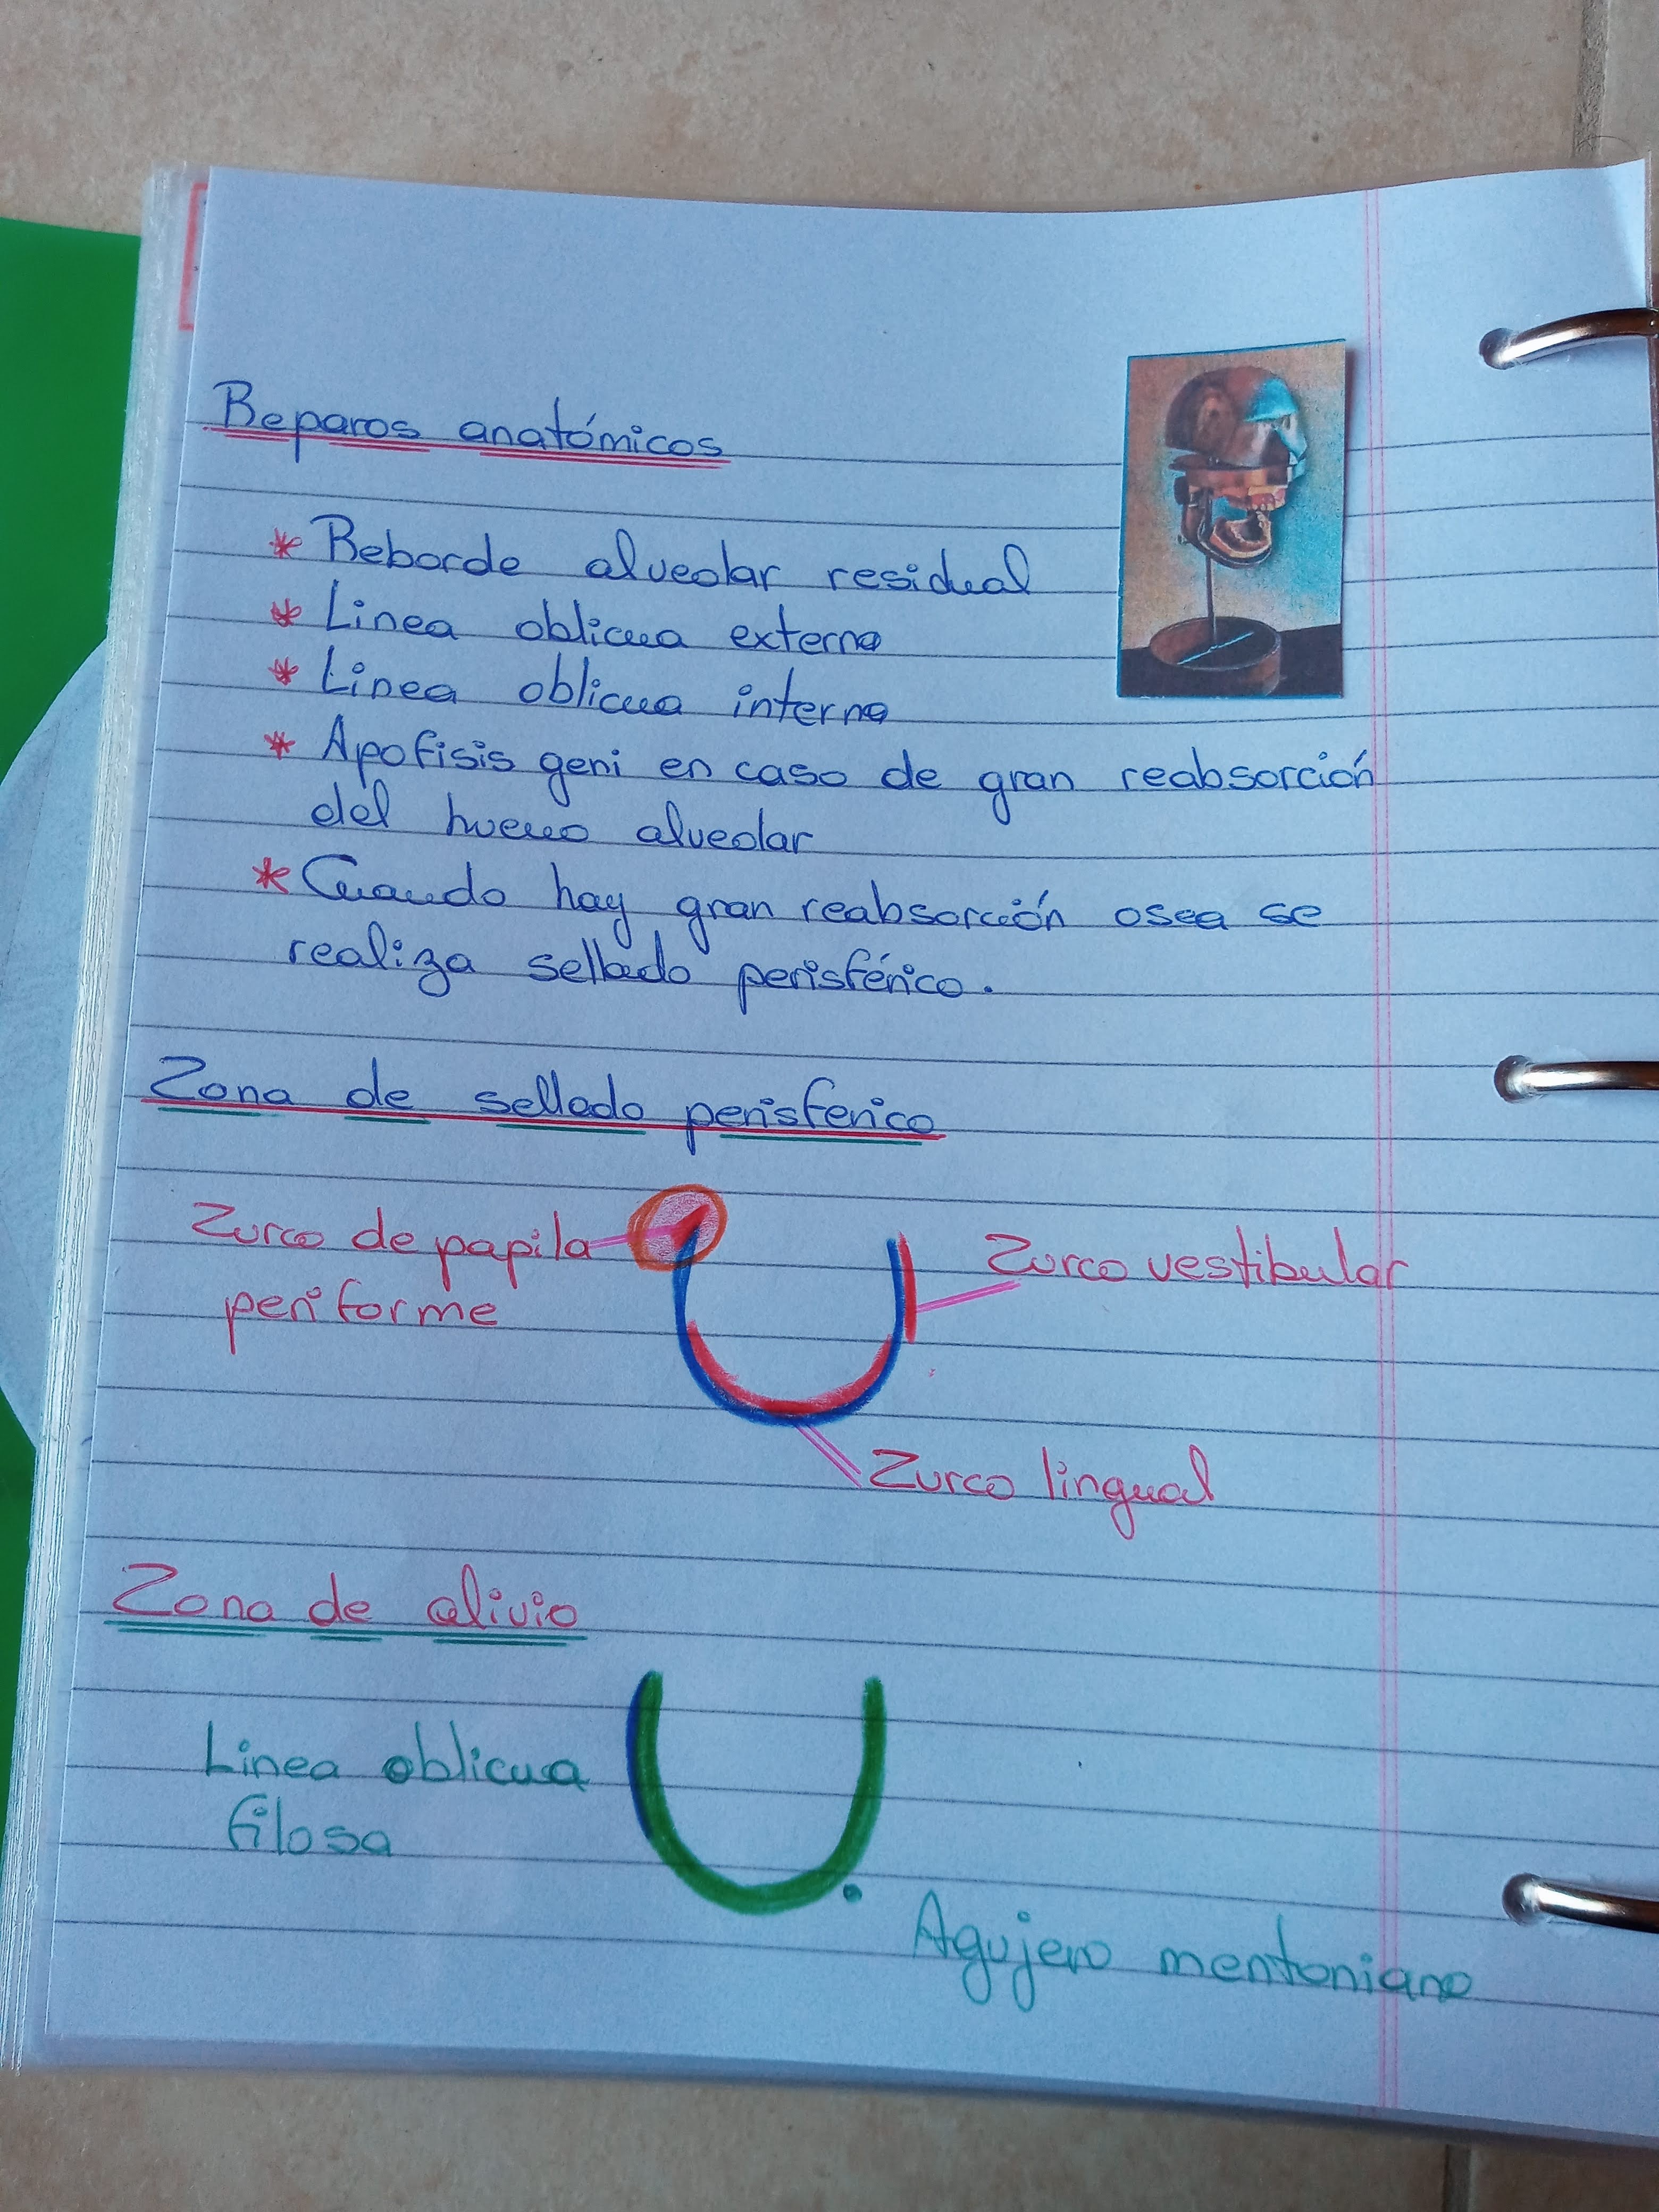 Reparos anatómicos
* Reborde alveolar residual
* Linea oblicua externa
* Linea oblicua interna
* Apofisis geni en caso de gran reabsorción
del hueso alveolar
* Cuando hay gran reabsorción osea se
realiza sellado perisférico.
Zona de sellado perisferico
Zurco de papila
periforme
Zurco vestibular
Zurco lingual
Zona de alivio
Linea oblicua
filosa
Agujero mentoniano